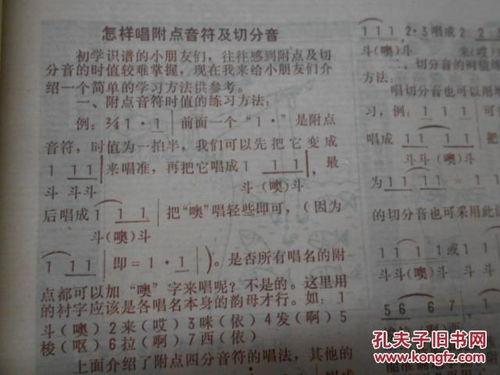 怎样唱附点音符及切分音
初学识谱的小朋友们，往往感到附点及切
分音的时值较难掌握，现在我来给小朋友们介
绍一个简单的学习方法供参考。
一、附点音符时值的练习方法：
例：2/4 1·1 前面一个“1·”是附点
音符，时值为一拍半，我们可以先把它变成
1 1 1 来唱准，再把它唱成 1 1 1，最
斗斗斗 斗(噢)斗
后唱成 1 1 1 把“噢”唱轻些即可，（因为
斗(噢)斗
1 1 1 即＝1·1）。是否所有唱名的附
点都可以加“噢”字来唱呢？不是的。这里用
的衬字应该是各唱名本身的韵母才行。如：1
斗（噢）2来（哎）3咪（依）4发（啊）5
梭（呕）6拉（啊）7西（依）
上面介绍了附点四分音符的唱法，其他的
1 1 1 2·3 唱成 2 2
斗(噢)斗
二、切分音的时值练
方法：
唱切分音也可以用
习，例：1 1 1
唱成 1 1 1 1
斗斗(噢)斗
为 1 1 1 1 = 1
的切分音也可采用此
1 1 1 或 1
斗斗(噢)斗
5 6 6 7 1
孔夫子旧书网
www.kongfz.com